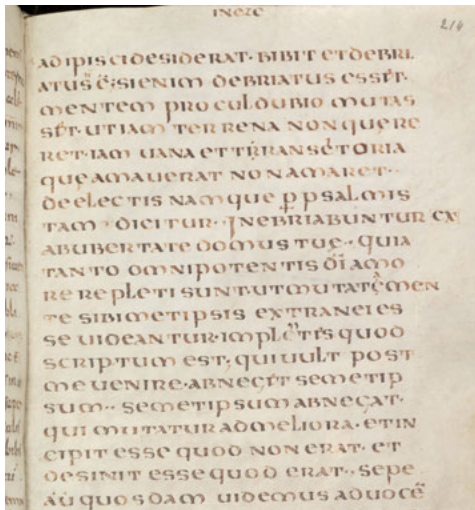 IN EZC
214
ADIPISCI DESIDERAT· BIBIT ET DEBRI
ATUS ÷; SI ENIM DEBRIATUS ESSET·
MENTEM PROCUL DUBIO MUTAS
SET· UT IAM TERRENA NON QUERE
RET· IAM UANA ET TRANSETORIA
QUĘ AMAUERAT NON AMARET··
DE ELECTIS NAMQUE P̱ PSALMIS
TAM· DICITUR· INEBRIABUNTUR EX
AB UBERTATE DOMUS TUĘ·· QUIA
TANTO OMNIPOTENTIS DI̅ AMO
RE REPLETI SUNT· UT MUTATĘ MEN
TE SIBIMETIPSIS EXTRANEI ES
SE UIDEANTUR· IMPLENTES QUOD
SCRIPTUM EST; QUI UULT POST
ME UENIRE· ABNEGET SEMETIP
SUM·· SEMETIPSUM ABNEGAT·
QUI MUTATUR AD MELIORA· ET IN
CIPIT ESSE QUOD NON ERAT· ET
DESINIT ESSE QUOD ERAT·· SEPE
AU̅ QUOSDAM UIDEMUS AD UOCE̅